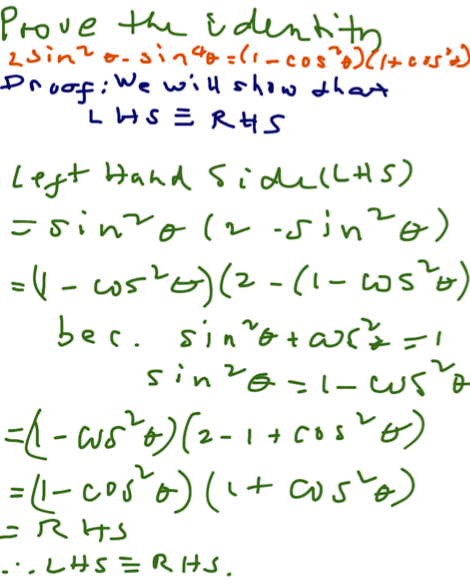 Prove the identity
2sin²θ - sin⁴θ = (1 - cos²θ)(1 + cos²θ)
Proof: We will show that
LHS ≡ RHS
Left Hand Side (LHS)
= sin²θ (2 - sin²θ)
= (1 - cos²θ)(2 - (1 - cos²θ)
bec. sin²θ + cos²θ = 1
sin²θ = 1 - cos²θ
= (1 - cos²θ)(2 - 1 + cos²θ)
= (1 - cos²θ)(1 + cos²θ)
= RHS
∴ LHS ≡ RHS.